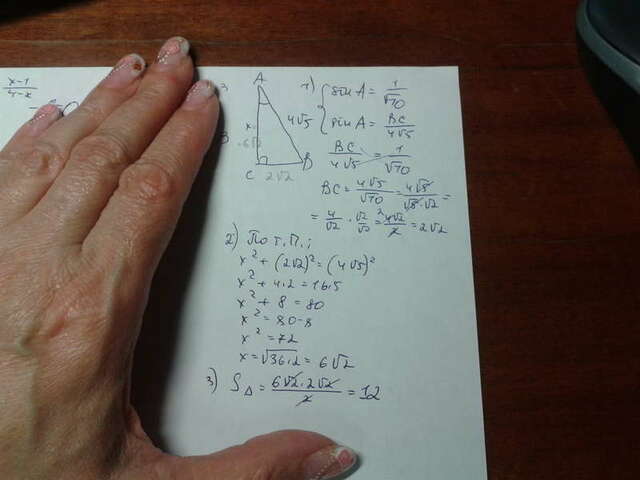 x-1
A
1) { sin A = 1/√10
4√5
sin A = BC/4√5
x
6√2
BC/4√5 = 1/√10
C 2√2 B
BC = 4√5/√10 = 4√5/√5·√2 =
= 4/√2 · √2/√2 = 4√2/2 = 2√2
2) По т. П.;
x² + (2√2)² = (4√5)²
x² + 4·2 = 16·5
x² + 8 = 80
x² = 80-8
x² = 72
x = √36·2 = 6√2
3) S△ = 6√2·2√2/2 = 12